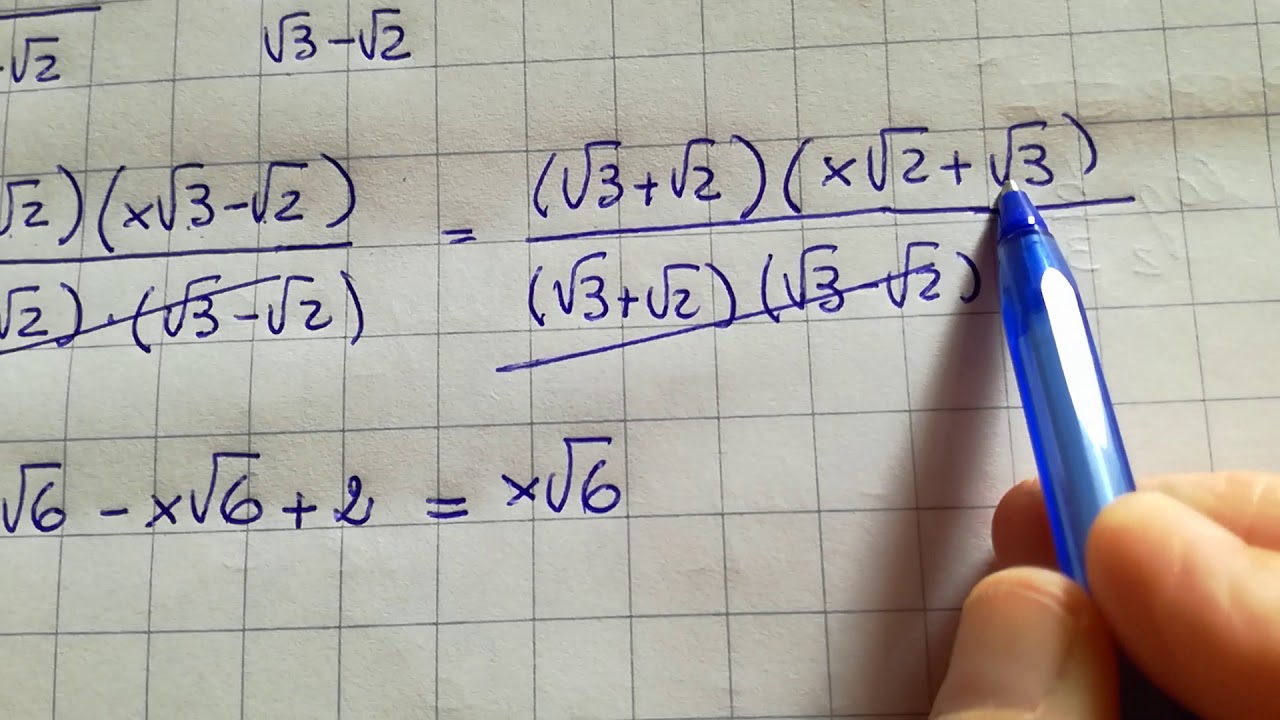 √2 √3 - √2
√2)(x√3 - √2) = (√3 + √2)(x√2 + √3)
√2) · (√3 - √2) (√3 + √2)(√3 - √2)
√6 - x√6 + 2 = x√6